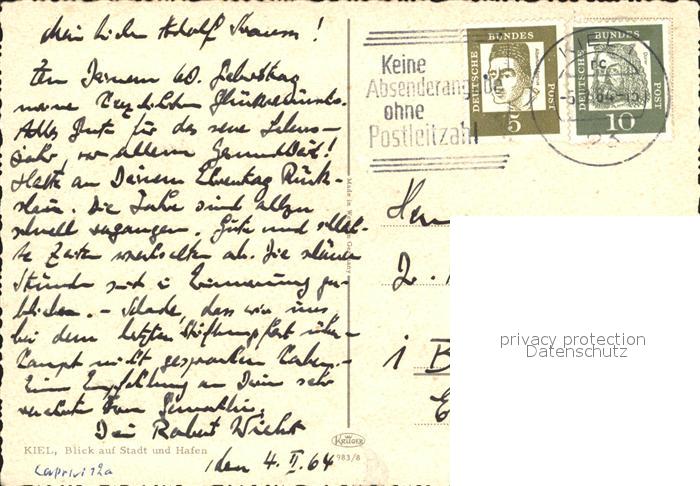 Mein lieber Adolf
Zu Deinem 60. Geburtstag
meine herzlichsten Glückwünsche.
Alles Gute für das neue Lebens-
jahr, vor allem Gesundheit!
Halte an Deinem Ehrentag Rück-
schau. Die Jahre sind allzu
schnell vergangen. Gute und schlech-
te Zeiten wechselten ab. Die schönen
Stunden sind in Erinnerung ge-
blieben. - Schade, dass wir uns
bei dem letzten Stiftungsfest über-
haupt nicht gesprochen haben. -
Eine Empfehlung an Deine sehr
verehrte Frau Gemahlin,
Dein Robert
den 4. II. 64
KIEL, Blick auf Stadt und Hafen
KRÜGER
983/8
Keine
Absenderangabe
ohne
Postleitzahl
DEUTSCHE BUNDES POST
5
DEUTSCHE BUNDES POST
10
Herrn
2.
i B
privacy protection
Datenschutz